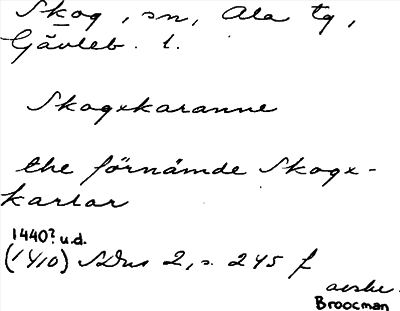 Skog, sn, Ala tg,
Gävleb. l.
Skogxkaranne
the förnämde Skogx-
karlar
1440? u.d.
(1410) SDns 2, s. 245 f
avskr.
Broocman